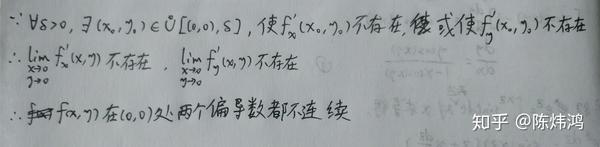 ∵ ∀δ>0, ∃(x₀,y₀)∈Ů[(0,0),δ], 使f'ₓ(x₀,y₀)不存在, 或使f'ᵧ(x₀,y₀)不存在
∴ lim_{x→0 y→0} f'ₓ(x,y)不存在, lim_{x→0 y→0} f'ᵧ(x,y)不存在
∴ f(x,y)在(0,0)处两个偏导数都不连续
知乎 @陈炜鸿